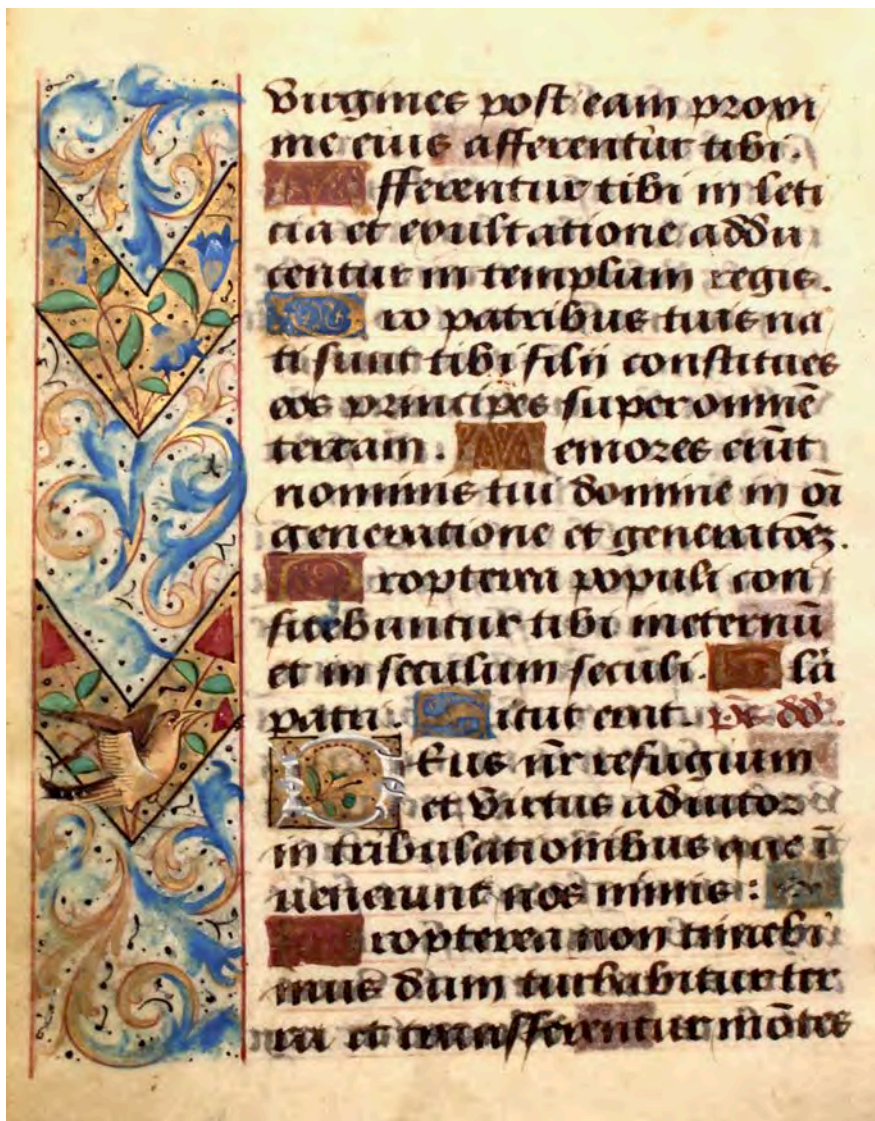 Virgines post eam proxi
me eius afferentur tibi.
Afferentur tibi in leti
cia et exultatione addu
centur in templum regis.
Pro patribus tuis na
ti sunt tibi filij constitues
eos principes super omnē
terram. Memores erūt
nominis tui domine in oī
generatione et generatōeʒ.
Propterea populi con
fitebuntur tibi ineternū
et in seculum seculi. Glā
patri. Sicut erat. ps. dd.
Deus nr̄ refugium
et virtus adiutor
in tribulationibus que ī
uenerunt nos nimis:
Propterea non timebi
mus dum turbabitur ter
ra et transfferentur mōtes